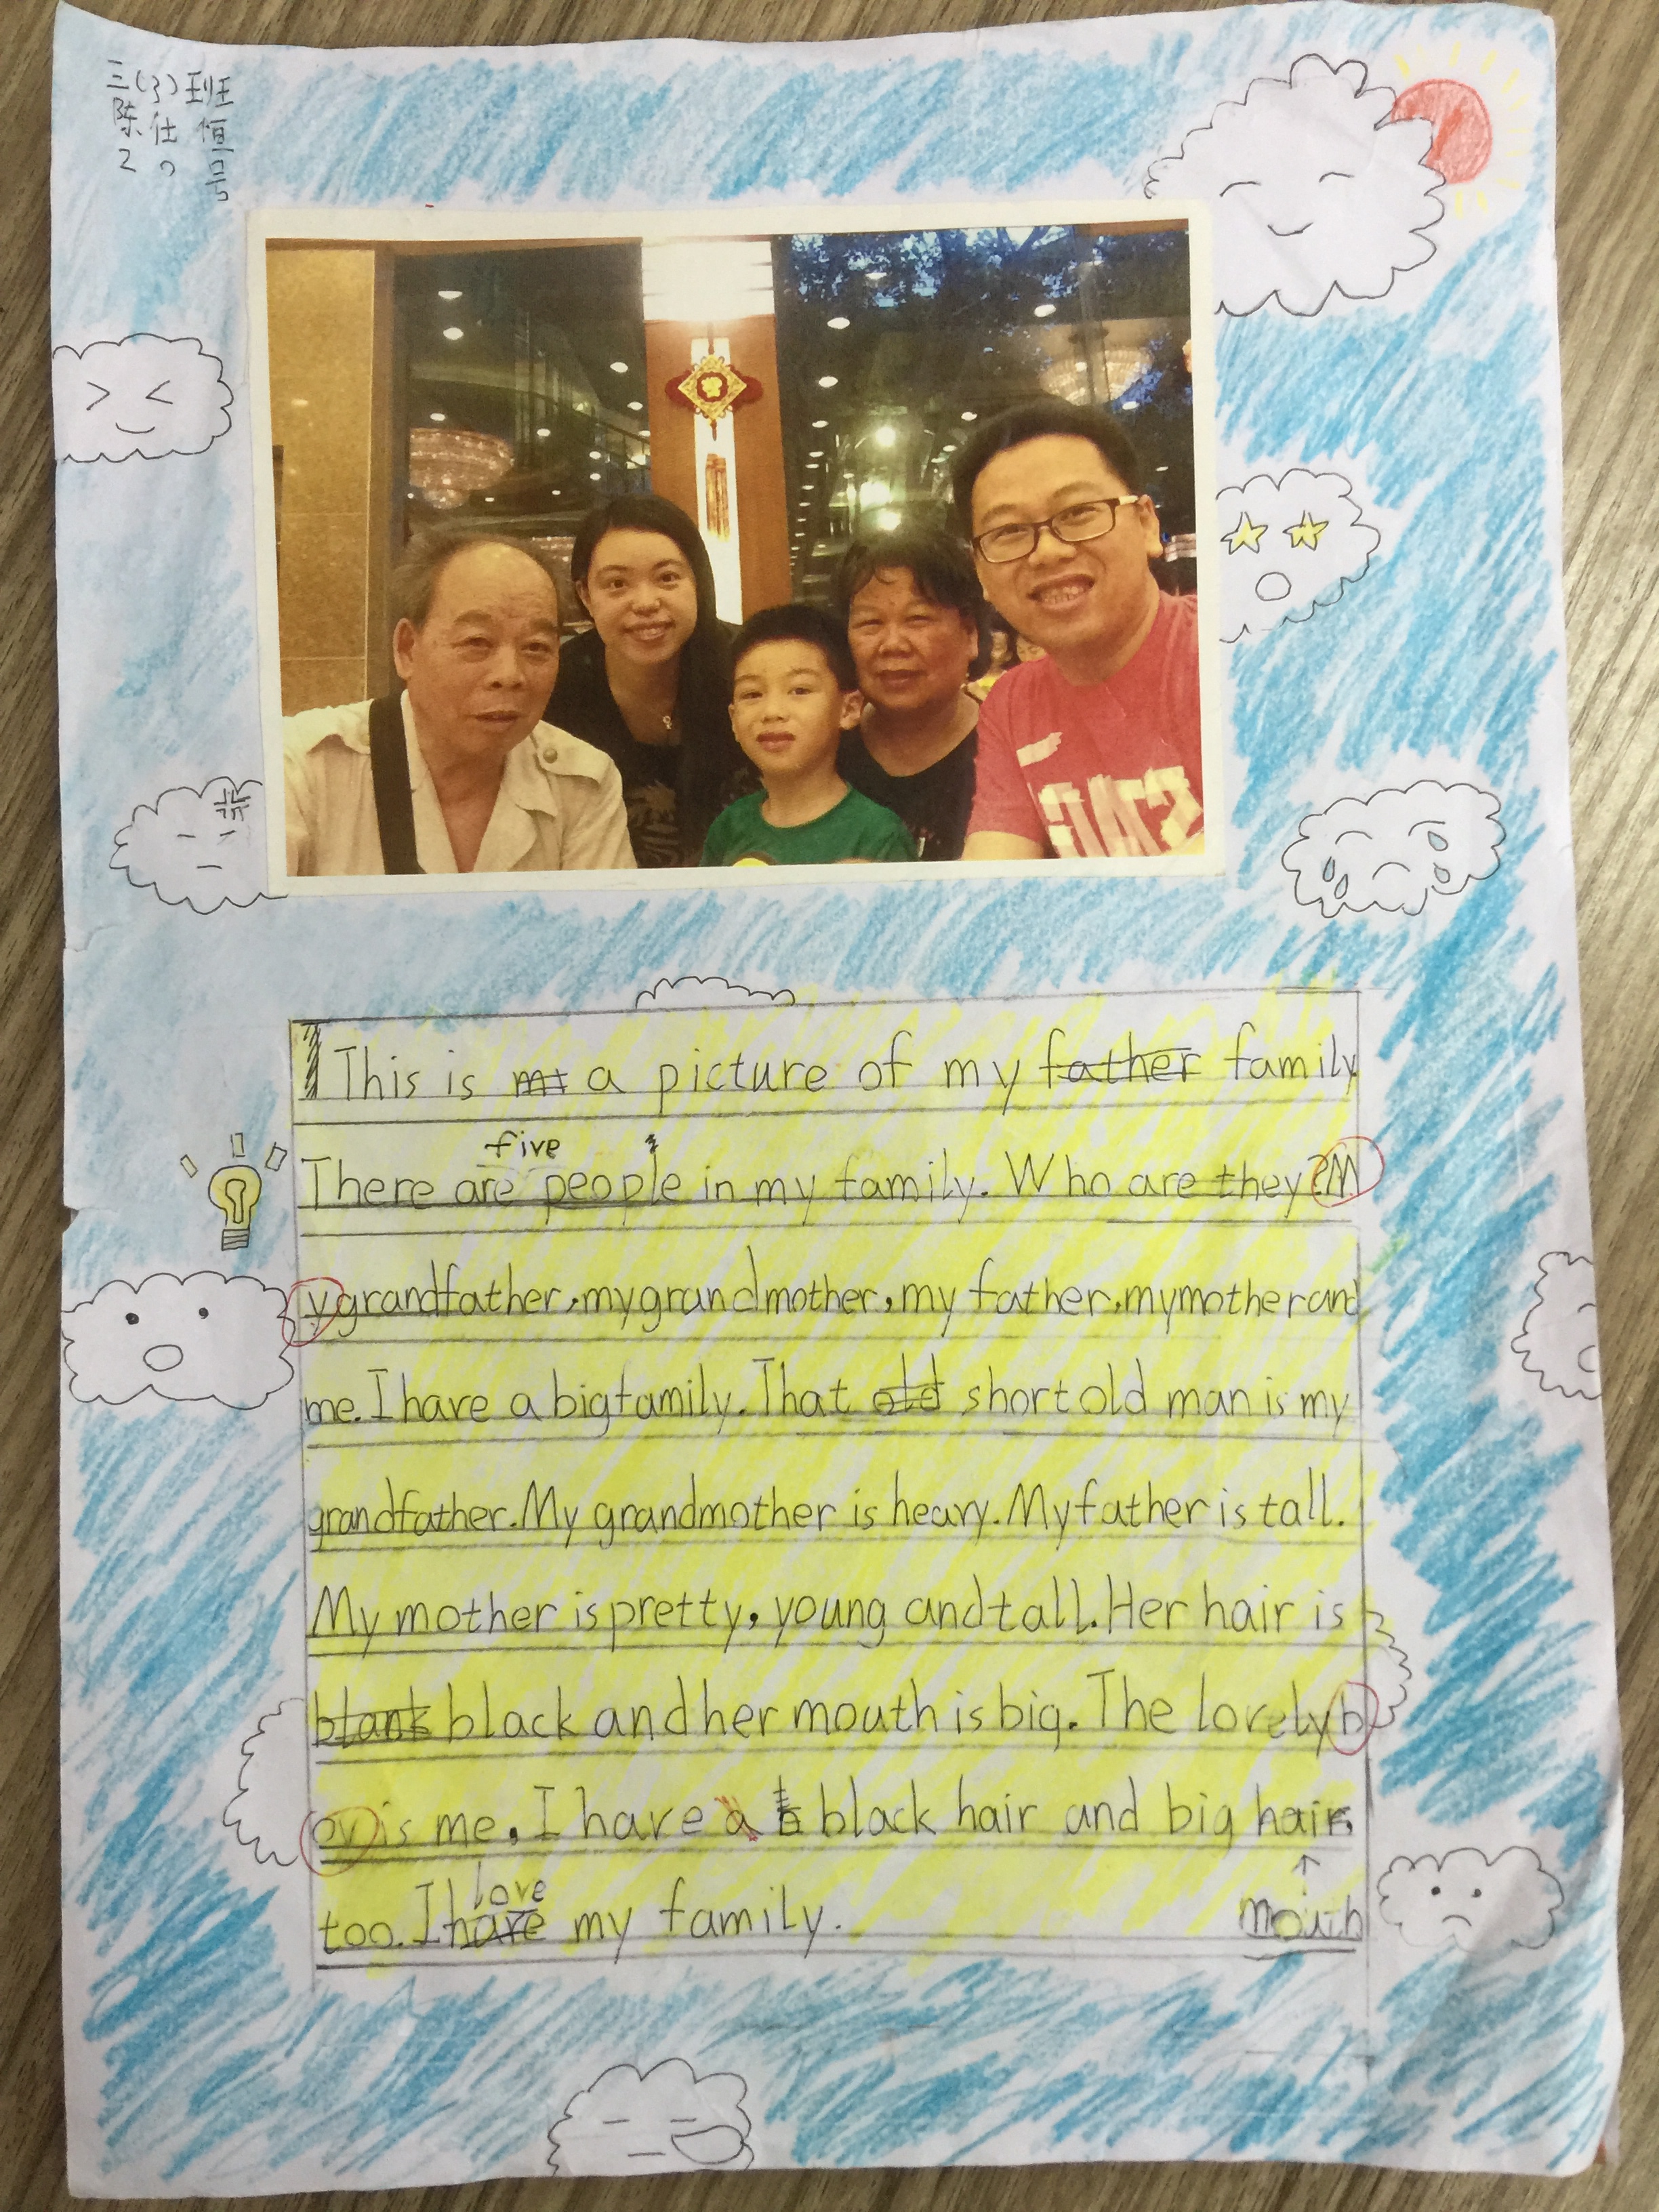 三(3)班
陈仕恒
20号
This is a picture of my father family
five
There are people in my family. Who are they? M
y grandfather, my grandmother, my father, my mother and
me. I have a big family. That old short old man is my
grandfather. My grandmother is heavy. My father is tall.
My mother is pretty, young and tall. Her hair is
blank black and her mouth is big. The lovely b
oy is me. I have a black hair and big hair,
love
too. I have my family.
mouth